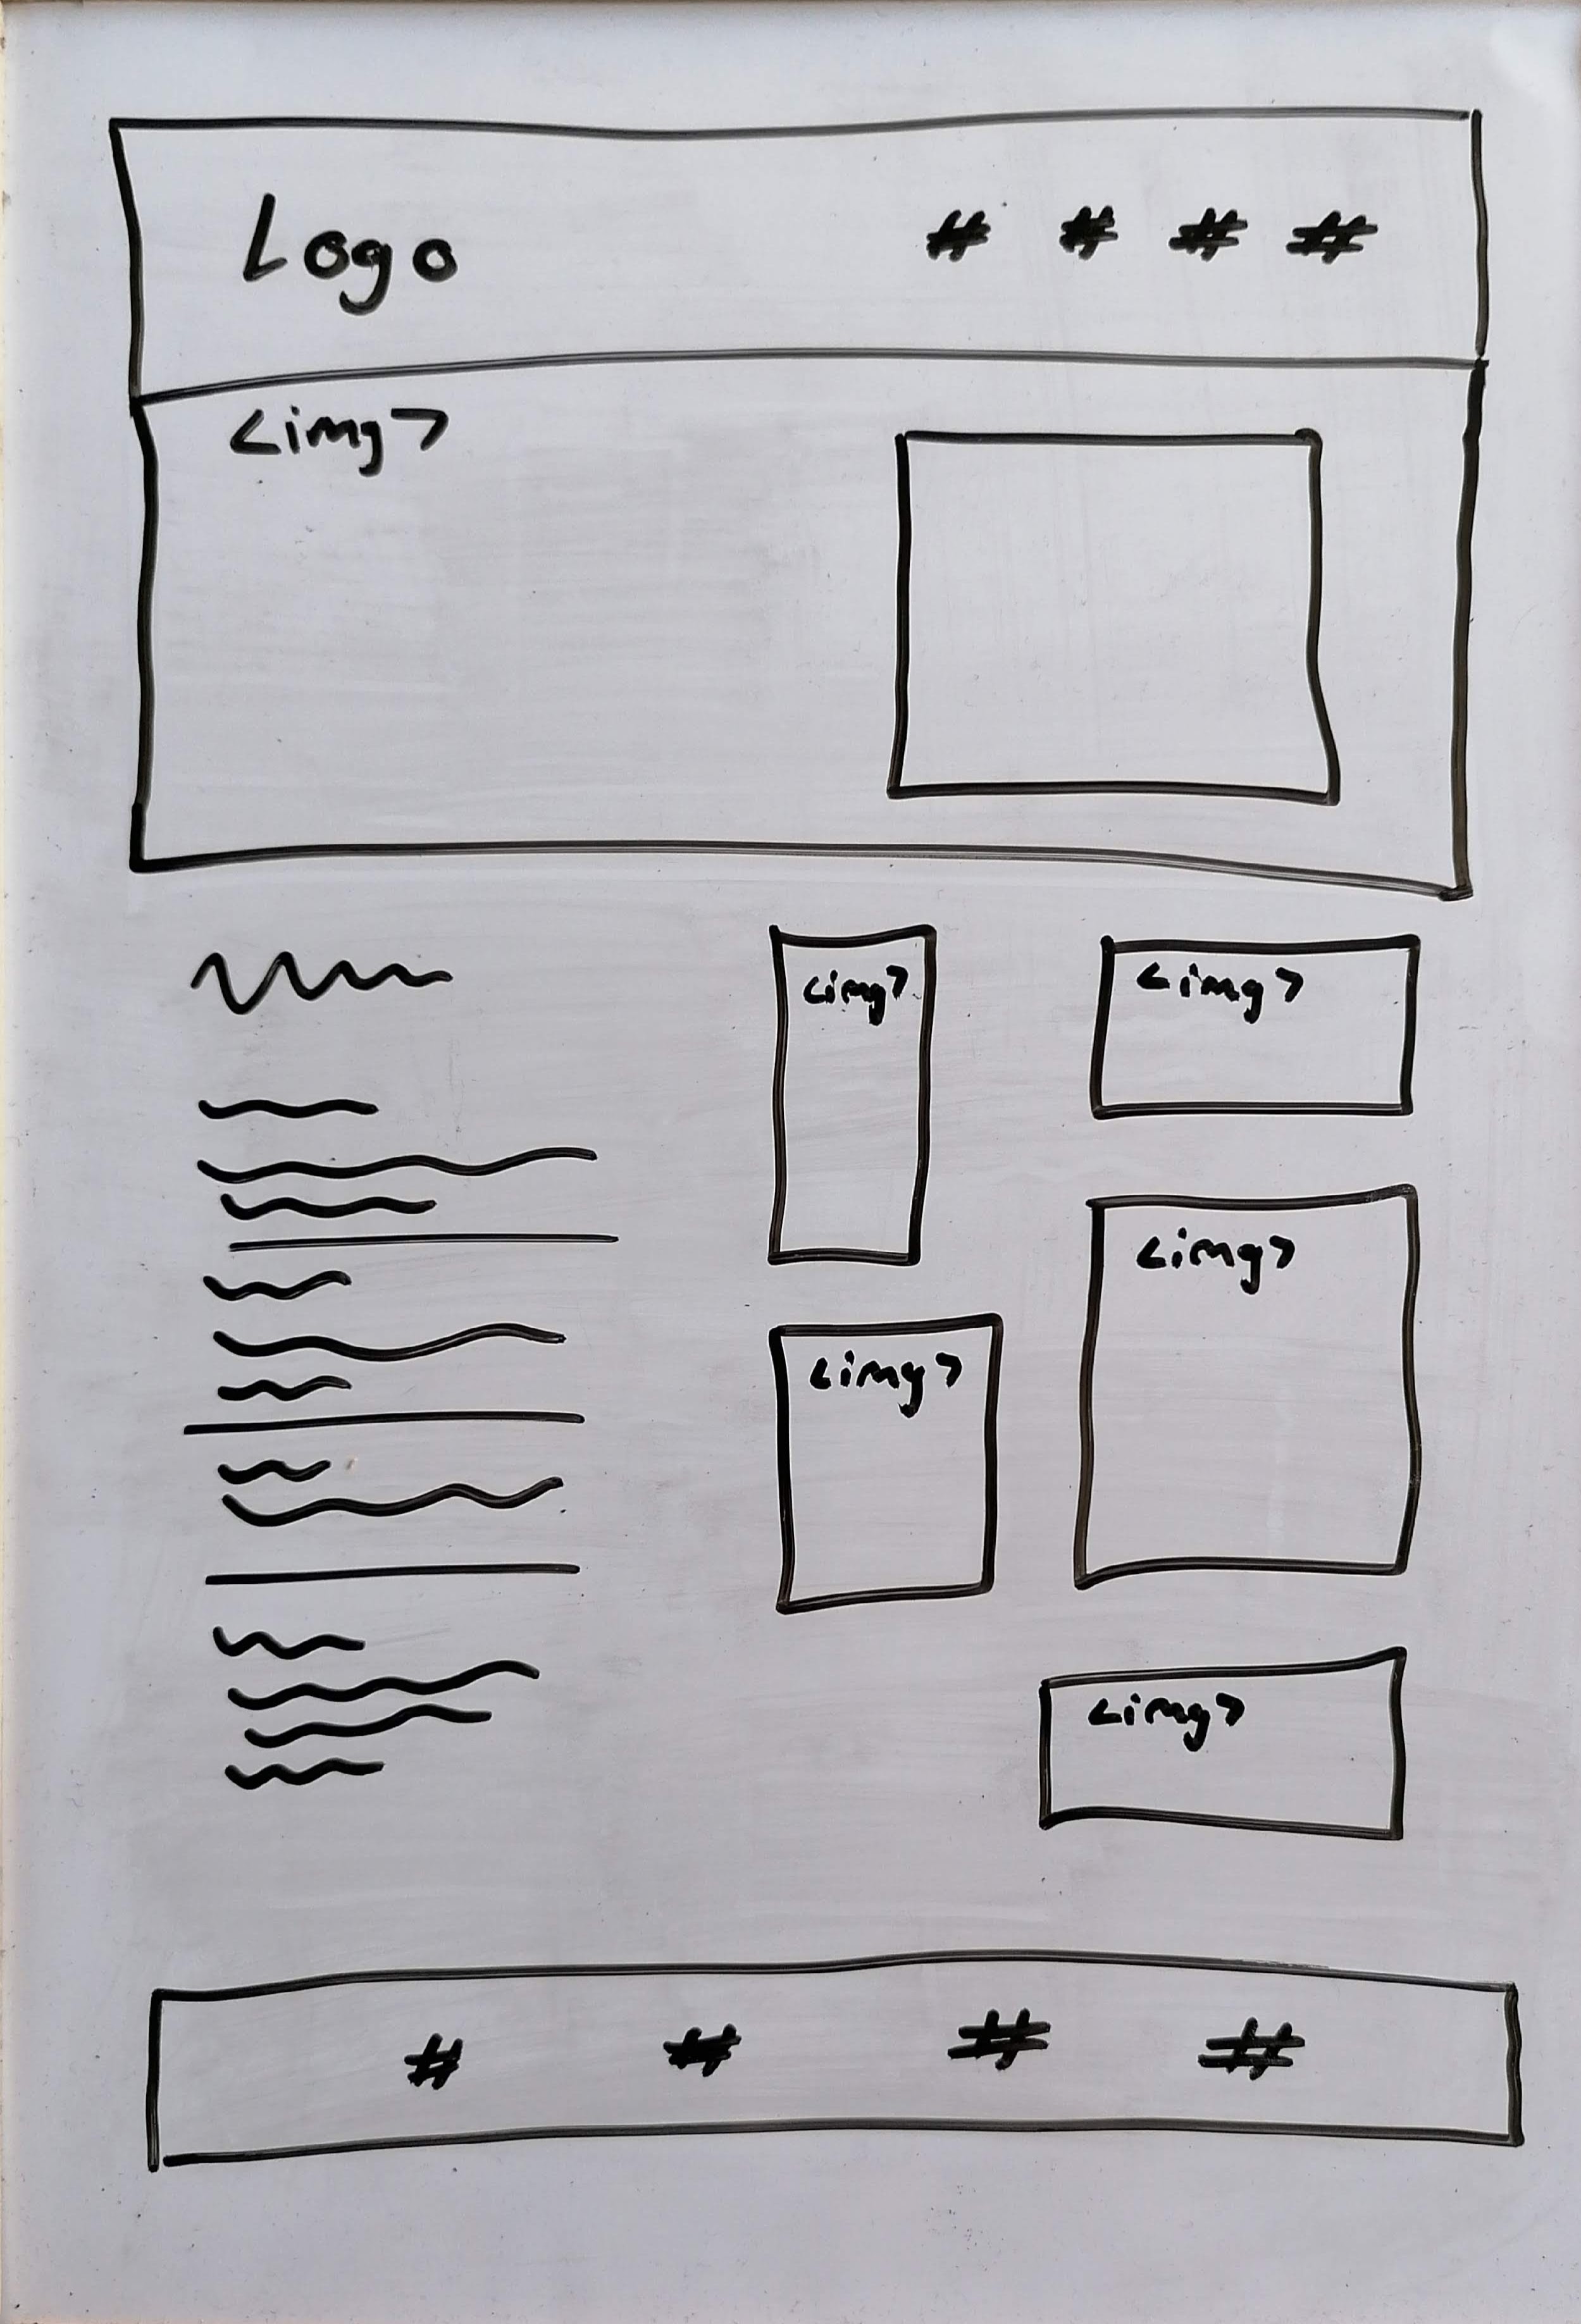 Logo # # # #
<img>
<img> <img>
<img>
<img>
<img>
# # # #